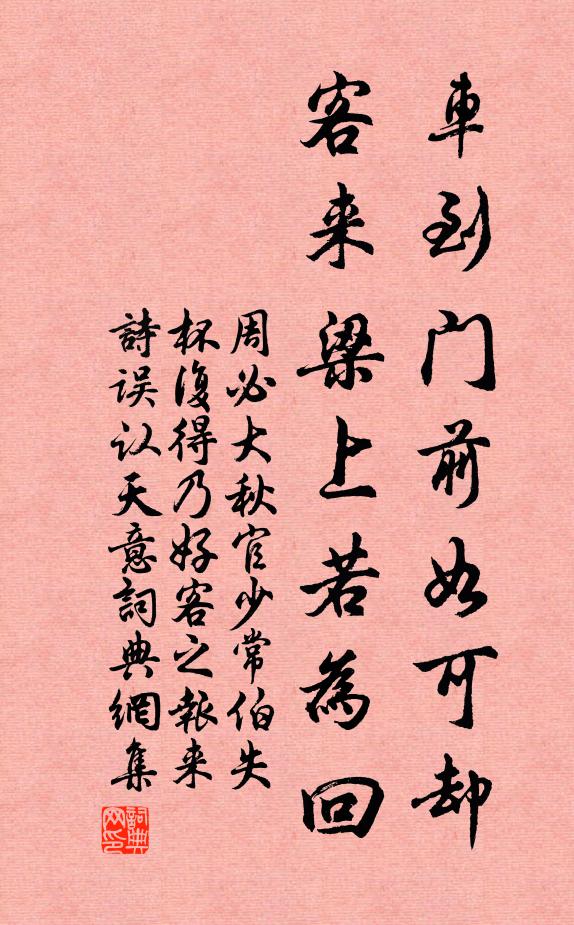 車到門前如可却
客来梁上若為回
周必大秋官少常伯失
杯復得乃好客之報来
詩误认天意詞典網集
詞典
网印